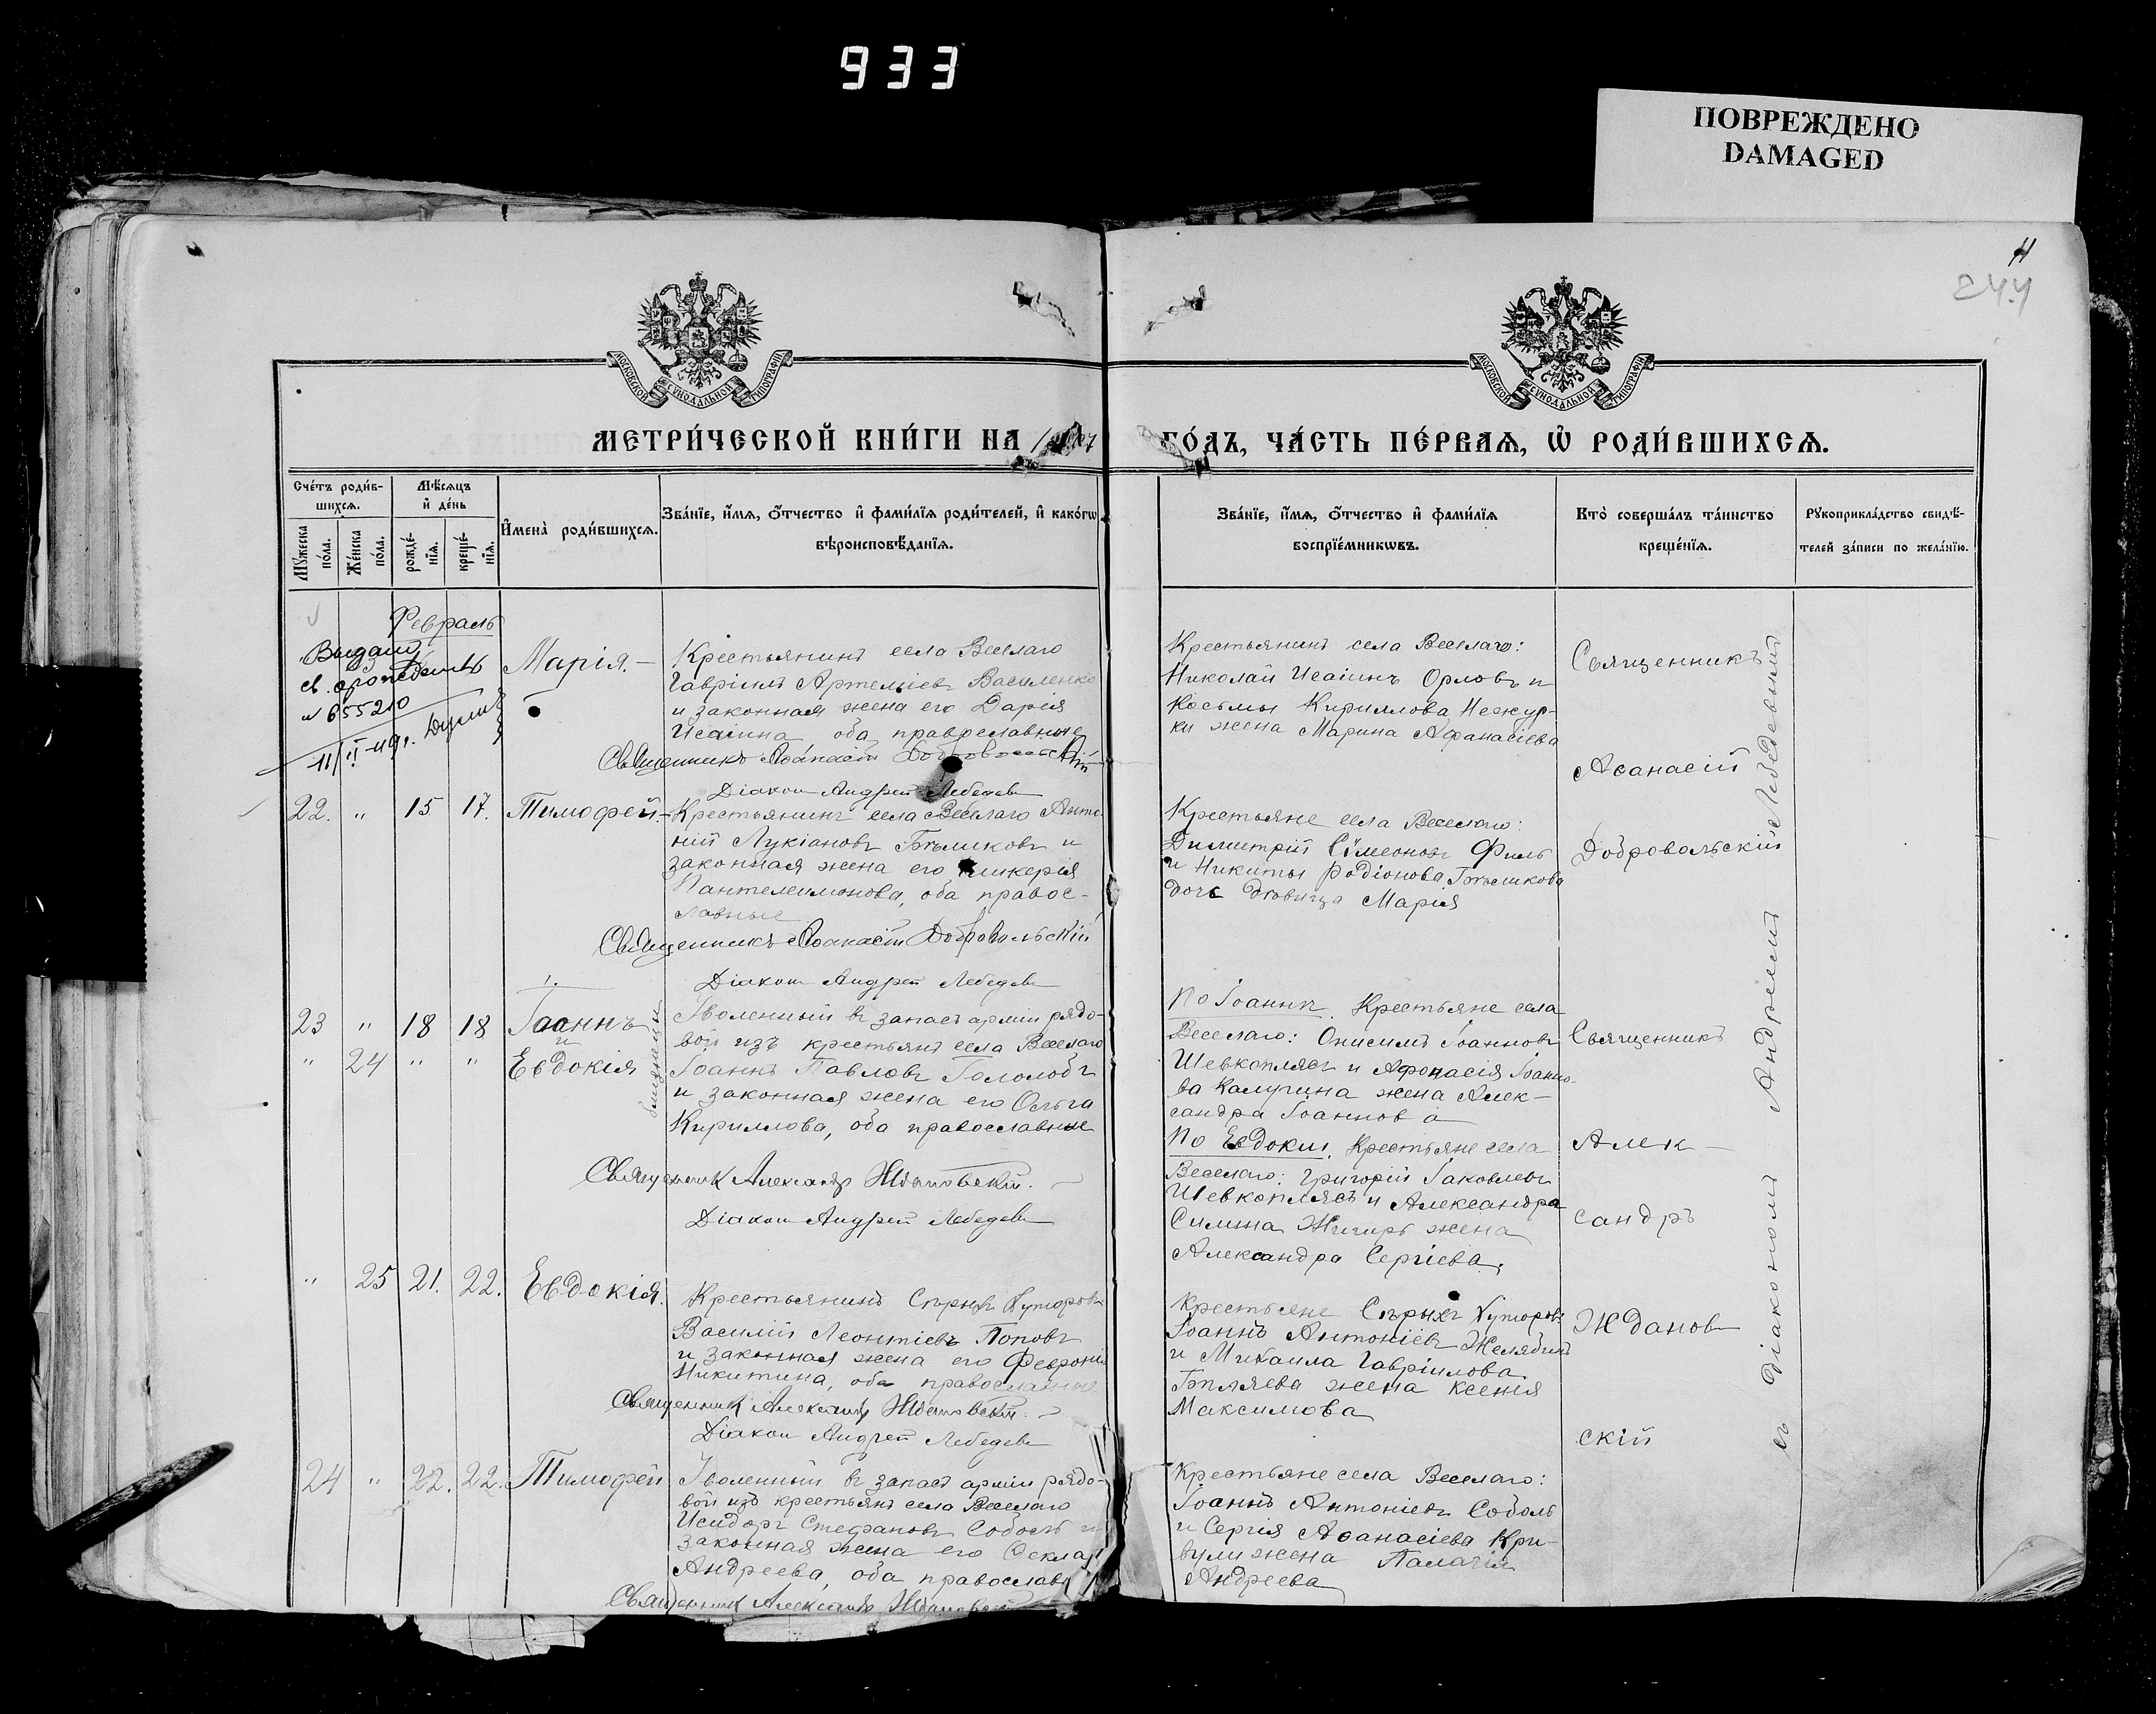 933
ПОВРЕЖДЕНО
DAMAGED
11
244
МОСКОВСКОЙ СѴНОДАЛЬНОЙ ТИПОГРАФІИ
МОСКОВСКОЙ СѴНОДАЛЬНОЙ ТИПОГРАФІИ
МЕТРИ́ЧЕСКОЙ КНИ́ГИ НА
ГО́ДЪ, ЧА́СТЬ ПЕ́РВАѦ, Ѡ҆ РОДИ́ВШИХСѦ.
Сче́тъ роди́в-
шихсѧ.
Мѣ́сѧцъ
и҆ де́нь
Мꙋ́жеска
по́ла.
Же́нска
по́ла.
рожде́-
нїѧ.
креще́-
нїѧ.
И҆мена̀ роди́вшихсѧ.
Зва́нїе, и҆́мѧ, ѻ҆́тчество и҆ фами́лїѧ роди́телей, и҆ како́гѡ
вѣроисповѣ́данїѧ.
Зва́нїе, и҆́мѧ, ѻ҆́тчество и҆ фами́лїѧ
воспрїе́мникѡвъ.
Кто̀ соверша́лъ та́инство
креще́нїѧ.
Рꙋкоприкла́дство свидѣ́-
телей за́писи по жела́нїю.
Февраль
Выдано
св. о рожденіи
N 655210
11/II-49г.
Марія.-
Крестьянинъ села Веселаго
Гавріилъ Артеміевъ Василенко
и законная жена его Дарія
Исаіина оба православные
Священникъ Аѳанасій Добровольскій
Діаконъ Андрей Лебедевъ
Крестьянинъ села Веселаго:
Николай Исаіинъ Орловъ и
Косьмы Кириллова Нежур-
ки жена Марина Афанасіева
Священникъ
Аѳанасій
22. " 15. 17. Тимофей.-
Крестьянинъ села Веселаго Анто-
ній Лукіановъ Бѣликовъ и
законная жена его Гликерія
Пантелеимонова, оба правос-
лавные
Священникъ Аѳанасій Добровольскій
Діаконъ Андрей Лебедевъ
Крестьяне села Веселаго:
Димитрій Сѵмеоновъ Филь
и Никиты Родіонова Бѣликова
дочь дѣвица Марія
Добровольскій
23 " 18 18 Іоаннъ
и
" 24 " " Евдокія
близнецы
Уволенный въ запасъ арміи рядо-
вой изъ крестьянъ села Веселаго
Іоаннъ Павловъ Гололобъ
и законная жена его Ольга
Кириллова, оба православные
Священникъ Александръ Ждановскій.
Діаконъ Андрей Лебедевъ
По Іоаннѣ. Крестьяне села
Веселаго: Онисимъ Іоанновъ
Шевкоплясъ и Афонасія Іоанно-
ва Калугина жена Алек-
сандра Іоаннова
По Евдокіи. Крестьяне села
Веселаго: Григорій Іаковлевъ
Шевкоплясъ и Александра
Силина Жигиръ жена
Александра Сергіева.
Священникъ
Алек-
сандръ
" 25 21. 22. Евдокія.
Крестьянинъ Сѣрыхъ Хуторовъ
Василій Леонтіевъ Поповъ
и законная жена его Февронія
Никитина, оба православные
Священникъ Александръ Ждановскій.
Діаконъ Андрей Лебедевъ
Крестьяне Сѣрыхъ Хуторовъ
Іоаннъ Антоніевъ Желябинъ
и Михаила Гавріилова
Бѣляева жена Ксенія
Максимова
Жданов-
скій
24 " 22. 22. Тимофей
Уволенный въ запасъ арміи рядо-
вой изъ крестьянъ села Веселаго
Исидоръ Стефановъ Соболь и
законная жена его Ѳекла
Андреева, оба православ
Священникъ Александръ Ждановскій
Крестьяне села Веселаго:
Іоаннъ Антоніевъ Соболь
и Сергія Аѳанасіева Кри-
вули жена Палагія
Андреева
съ Діакономъ Андреемъ Лебедевымъ